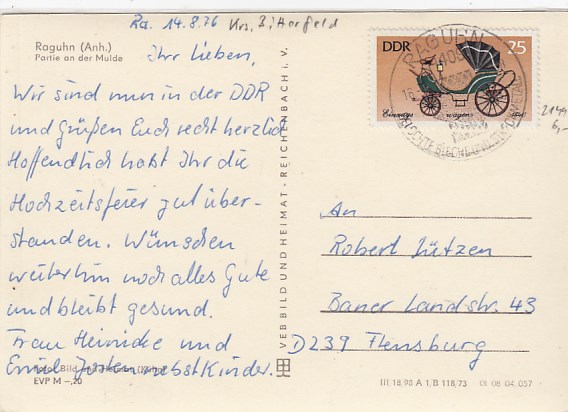 Ra. 14.8.76 Krs. Bitterfeld
Raguhn (Anh.)
Partie an der Mulde
Ihr Lieben,
Wir sind nun in der DDR
und grüßen Euch recht herzlich
Hoffendlich habt Ihr die
Hochzeitsfeier gut über-
standen. Wünschen
weiterhin noch alles Gute
und bleibt gesund.
Frau Heinicke und
Emil nebst Kinder.
Foto: Bild und Heimat
EVP M –,20
VEB BILD UND HEIMAT · REICHENBACH i. V.
DDR 25
RAGUHN
2149
6,–
An
Robert Lützen
Baner Landstr. 43
D239 Flensburg
III 18 98 A 1 B 118/73 01 08 04 057